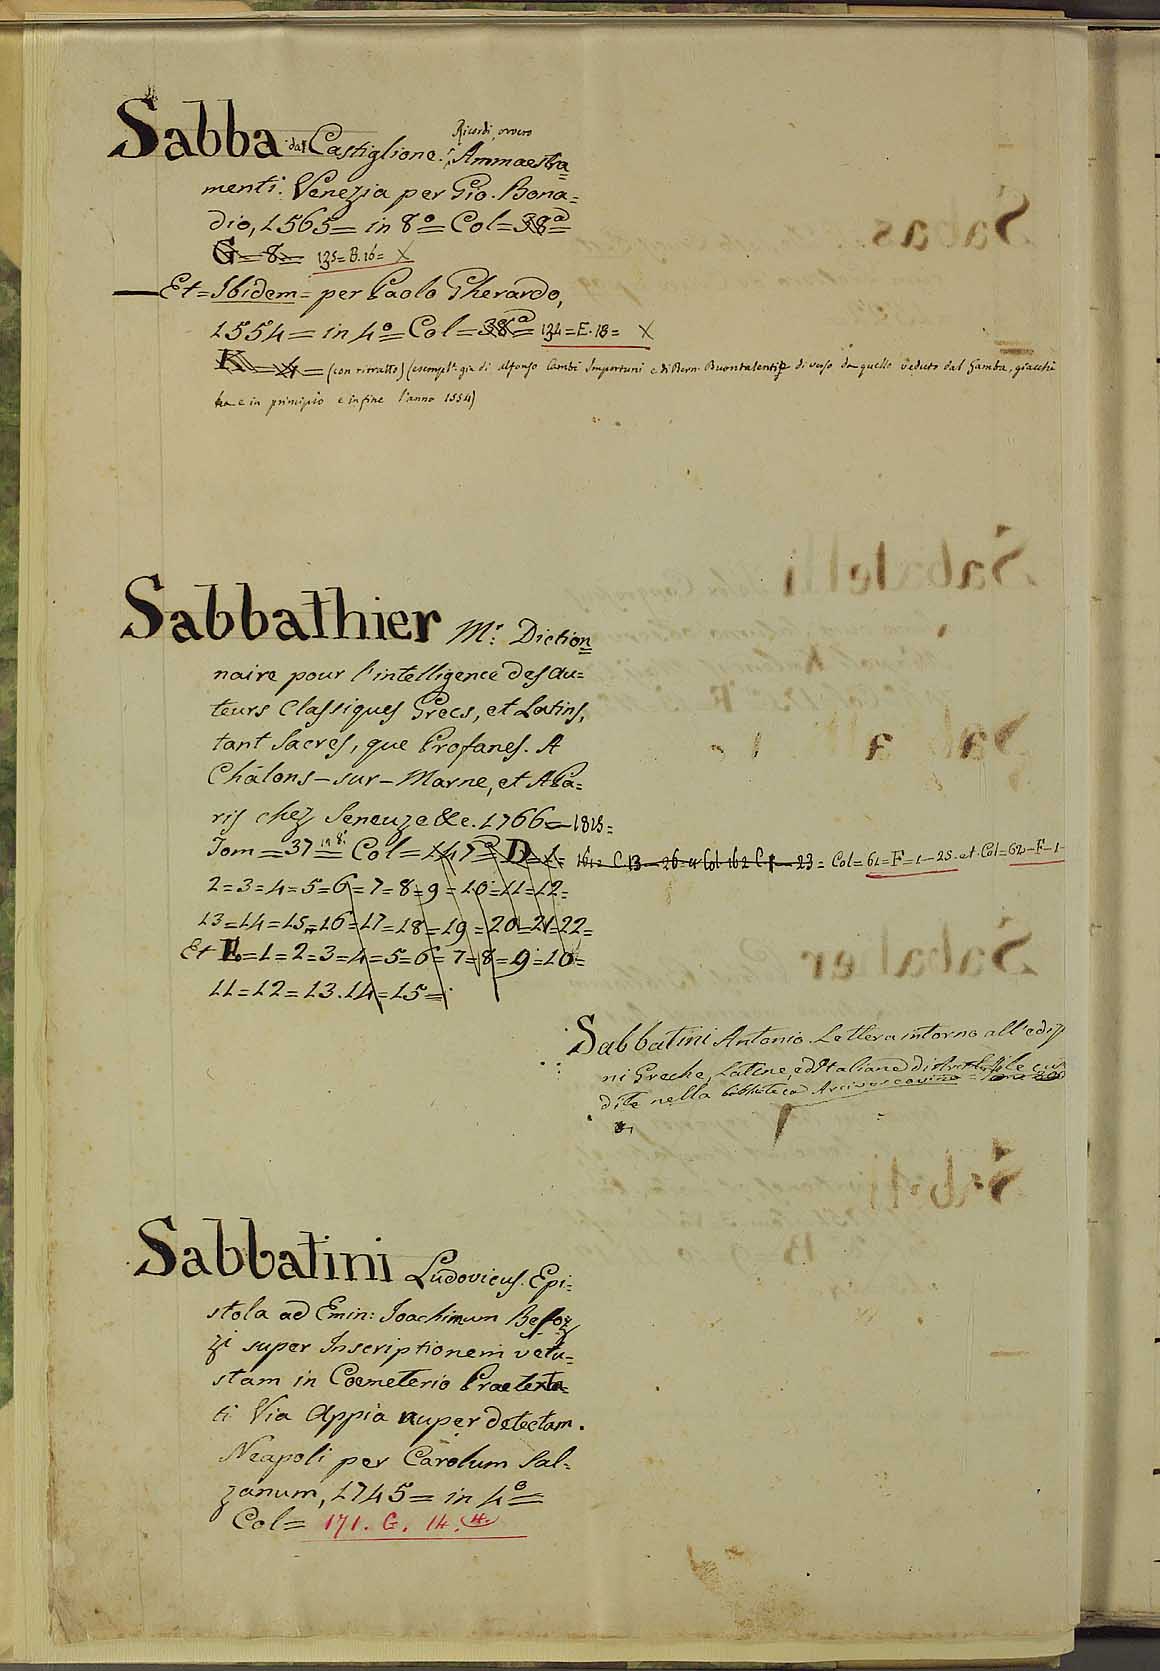 Ricordi, ovvero
Sabba da Castiglione. Ammaestra=
menti. Venezia per Gio. Bona=
dio, 1565= in 8º= Col=38ª=
G=8= 135=B.16= X
Et=Ibidem= per Paolo Gherardo,
1554= in 4º= Col=38ª= 134=E.18= X
K=4= (con ritratto) (esempl.e già di Alfonso Cambi Importuni e di Bern. Buontalenti diverso da quello veduto dal Gamba, giacchè
ha e in principio e in fine l'anno 1554)
Sabbathier Mr. Diction=
naire pour l'intelligence des Au=
teurs Classiques Grecs, et Latins,
tant Sacres, que Profanes. A
Châlons-sur-Marne, et A Pa=
ris chez Seneuze &c. 1766=1815=
Tom=37 in 8º Col=147= D=1= Col=61=F=1-25. et Col=62-F-1-
2=3=4=5=6=7=8=9=10=11=12=
13=14=15=16=17=18=19=20=21=22=
Et E=1=2=3=4=5=6=7=8=9=10=
11=12=13.14=15=
Sabbatini Antonio Lettera intorno all'ediz
ni Greche, Latine, ed Italiane
dite nella biblioteca Arcivescovino
Sabbatini Ludovicus. Epi=
stola ad Emin: Joachimum Besoz=
zi super Inscriptionem vetu=
stam in Coemeterio Praetexta=
ti Via Appia nuper detectam.
Neapoli per Carolum Sal=
zanum, 1745= in 4º=
Col= 171. G. 14. 4.